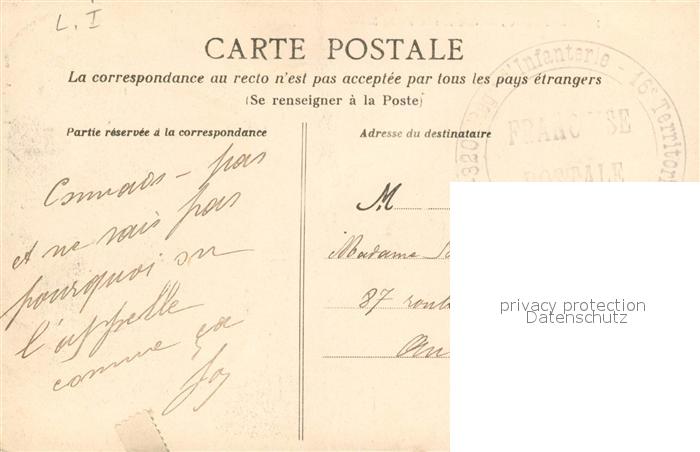 L. I
CARTE POSTALE
La correspondance au recto n'est pas acceptée par tous les pays étrangers
(Se renseigner à la Poste)
Partie réservée à la correspondance
Adresse du destinataire
d'Infanterie - 16e Territori
FRANCHISE
POSTALE
pas
et ne sais pas
pourquoi on
l'appelle
comme ça
M
Madame
87 route
privacy protection
Datenschutz